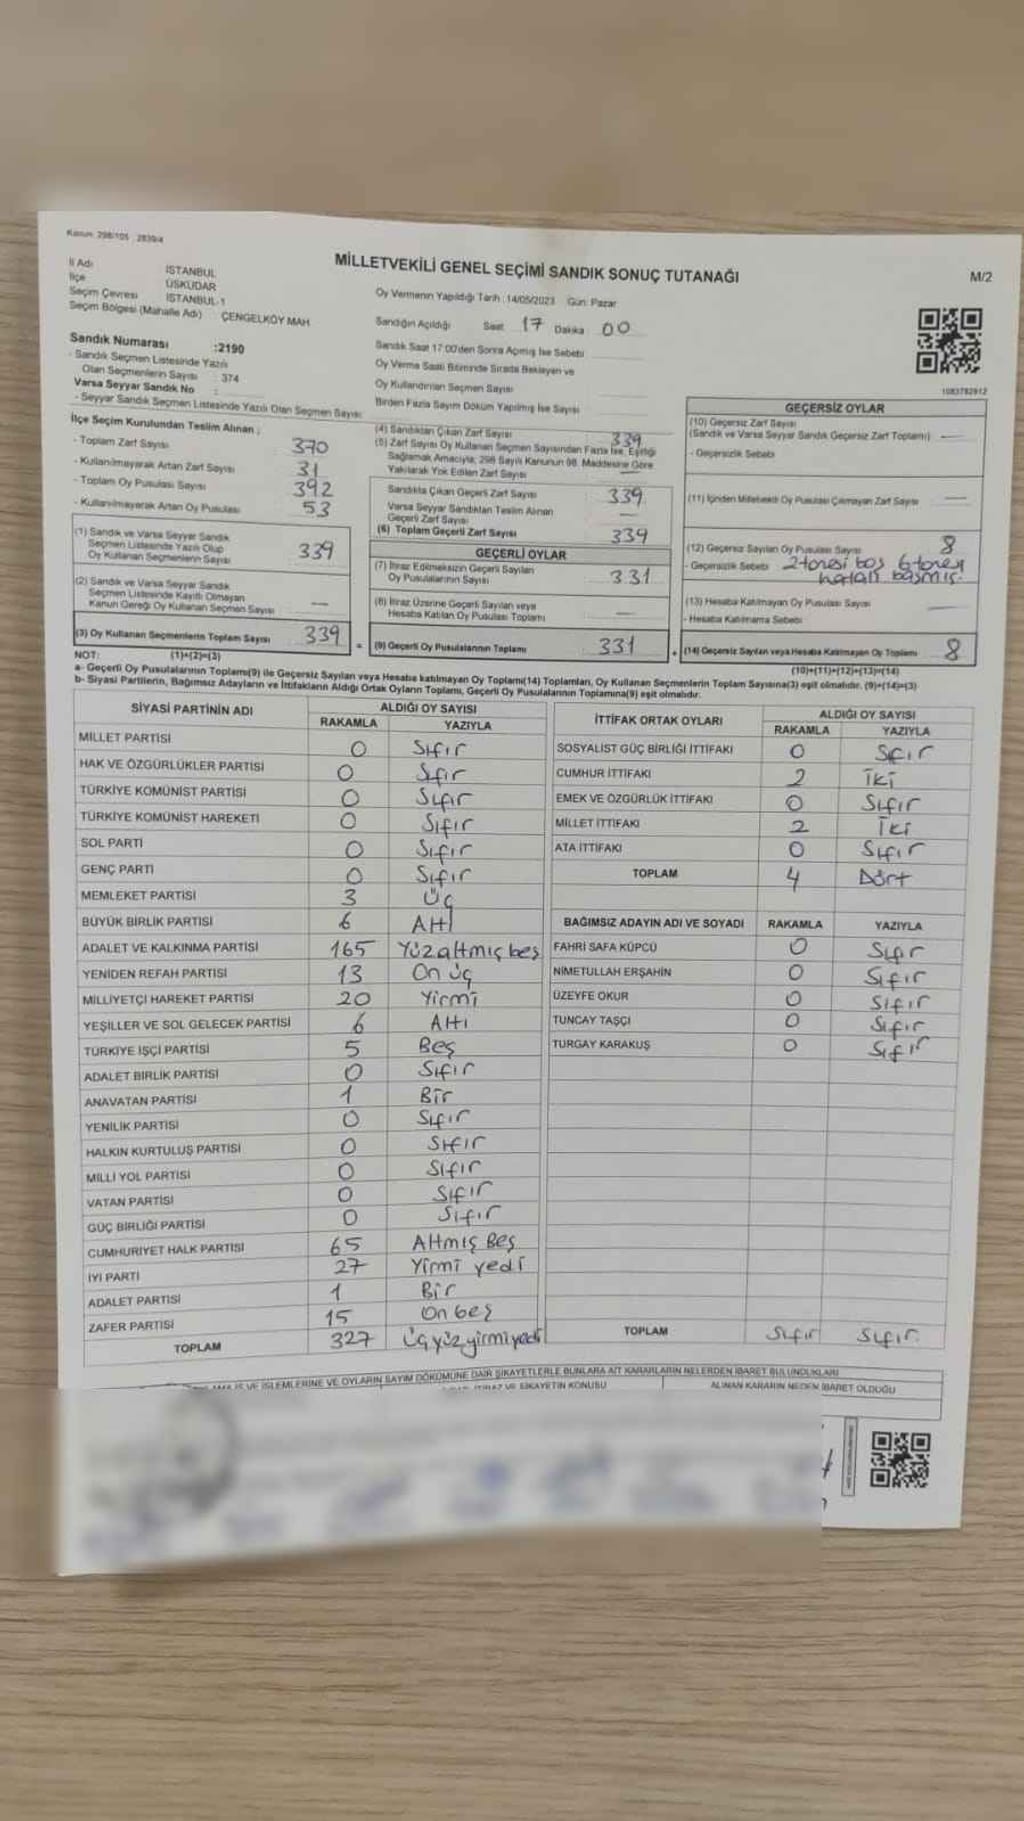 Kanun: 298/105 2839/4
İl Adı İSTANBUL
İlçe ÜSKÜDAR
Seçim Çevresi İSTANBUL-1
Seçim Bölgesi (Mahalle Adı) ÇENGELKÖY MAH
MİLLETVEKİLİ GENEL SEÇİMİ SANDIK SONUÇ TUTANAĞI
M/2
Oy Vermenin Yapıldığı Tarih :14/05/2023 Gün: Pazar
Sandığın Açıldığı Saat 17 Dakika 00
Sandık Saat 17:00'den Sonra Açılmış İse Sebebi
Oy Verme Saati Bitiminde Sırada Bekleyen ve
Oy Kullandırılan Seçmen Sayısı
Birden Fazla Sayım Döküm Yapılmış İse Sayısı
1083782912
Sandık Numarası :2190
- Sandık Seçmen Listesinde Yazılı
Olan Seçmenlerin Sayısı : 374
Varsa Seyyar Sandık No :
- Seyyar Sandık Seçmen Listesinde Yazılı Olan Seçmen Sayısı:
İlçe Seçim Kurulundan Teslim Alınan :
- Toplam Zarf Sayısı 370
- Kullanılmayarak Artan Zarf Sayısı 31
- Toplam Oy Pusulası Sayısı 392
- Kullanılmayarak Artan Oy Pusulası 53
(1) Sandık ve Varsa Seyyar Sandık
Seçmen Listesinde Yazılı Olup
Oy Kullanan Seçmenlerin Sayısı 339
(2) Sandık ve Varsa Seyyar Sandık
Seçmen Listesinde Kayıtlı Olmayan
Kanun Gereği Oy Kullanan Seçmen Sayısı —
(3) Oy Kullanan Seçmenlerin Toplam Sayısı 339 =
(1)+(2)=(3)
(4) Sandıktan Çıkan Zarf Sayısı 339
(5) Zarf Sayısı Oy Kullanan Seçmen Sayısından Fazla İse, Eşitliği
Sağlamak Amacıyla, 298 Sayılı Kanunun 98. Maddesine Göre
Yakılarak Yok Edilen Zarf Sayısı —
Sandıkta Çıkan Geçerli Zarf Sayısı 339
Varsa Seyyar Sandıktan Teslim Alınan
Geçerli Zarf Sayısı —
(6) Toplam Geçerli Zarf Sayısı 339
GEÇERLİ OYLAR
(7) İtiraz Edilmeksizin Geçerli Sayılan
Oy Pusulalarının Sayısı 331
(8) İtiraz Üzerine Geçerli Sayılan veya
Hesaba Katılan Oy Pusulası Toplamı —
(9) Geçerli Oy Pusulalarının Toplamı 331 +
GEÇERSİZ OYLAR
(10) Geçersiz Zarf Sayısı
(Sandık ve Varsa Seyyar Sandık Geçersiz Zarf Toplamı) —
- Geçersizlik Sebebi
(11) İçinden Milletvekili Oy Pusulası Çıkmayan Zarf Sayısı —
(12) Geçersiz Sayılan Oy Pusulası Sayısı 8
- Geçersizlik Sebebi 2 tanesi boş 6 tanesi
hatalı basmış.
(13) Hesaba Katılmayan Oy Pusulası Sayısı —
- Hesaba Katılmama Sebebi
(14) Geçersiz Sayılan veya Hesaba Katılmayan Oy Toplamı 8
(10)+(11)+(12)+(13)=(14)
NOT:
a- Geçerli Oy Pusulalarının Toplamı(9) ile Geçersiz Sayılan veya Hesaba katılmayan Oy Toplamı(14) Toplamları, Oy Kullanan Seçmenlerin Toplam Sayısına(3) eşit olmalıdır. (9)+(14)=(3)
b- Siyasi Partilerin, Bağımsız Adayların ve İttifakların Aldığı Ortak Oyların Toplamı, Geçerli Oy Pusulalarının Toplamına(9) eşit olmalıdır.
SİYASİ PARTİNİN ADI ALDIĞI OY SAYISI
RAKAMLA YAZIYLA
MİLLET PARTİSİ 0 Sıfır
HAK VE ÖZGÜRLÜKLER PARTİSİ 0 Sıfır
TÜRKİYE KOMÜNİST PARTİSİ 0 Sıfır
TÜRKİYE KOMÜNİST HAREKETİ 0 Sıfır
SOL PARTİ 0 Sıfır
GENÇ PARTİ 0 Sıfır
MEMLEKET PARTİSİ 3 Üç
BÜYÜK BİRLİK PARTİSİ 6 Altı
ADALET VE KALKINMA PARTİSİ 165 Yüzaltmış beş
YENİDEN REFAH PARTİSİ 13 On üç
MİLLİYETÇİ HAREKET PARTİSİ 20 Yirmi
YEŞİLLER VE SOL GELECEK PARTİSİ 6 Altı
TÜRKİYE İŞÇİ PARTİSİ 5 Beş
ADALET BİRLİK PARTİSİ 0 Sıfır
ANAVATAN PARTİSİ 1 Bir
YENİLİK PARTİSİ 0 Sıfır
HALKIN KURTULUŞ PARTİSİ 0 Sıfır
MİLLİ YOL PARTİSİ 0 Sıfır
VATAN PARTİSİ 0 Sıfır
GÜÇ BİRLİĞİ PARTİSİ 0 Sıfır
CUMHURİYET HALK PARTİSİ 65 Altmış Beş
İYİ PARTİ 27 Yirmi yedi
ADALET PARTİSİ 1 Bir
ZAFER PARTİSİ 15 On beş
TOPLAM 327 Üçyüzyirmiyedi
İTTİFAK ORTAK OYLARI ALDIĞI OY SAYISI
RAKAMLA YAZIYLA
SOSYALİST GÜÇ BİRLİĞİ İTTİFAKI 0 Sıfır
CUMHUR İTTİFAKI 2 İki
EMEK VE ÖZGÜRLÜK İTTİFAKI 0 Sıfır
MİLLET İTTİFAKI 2 İki
ATA İTTİFAKI 0 Sıfır
TOPLAM 4 Dört
BAĞIMSIZ ADAYIN ADI VE SOYADI RAKAMLA YAZIYLA
FAHRİ SAFA KÜPCÜ 0 Sıfır
NİMETULLAH ERŞAHİN 0 Sıfır
ÜZEYFE OKUR 0 Sıfır
TUNCAY TAŞÇI 0 Sıfır
TURGAY KARAKUŞ 0 Sıfır
TOPLAM Sıfır Sıfır
İŞ VE İŞLEMLERİNE VE OYLARIN SAYIM DÖKÜMÜNE DAİR ŞİKAYETLERLE BUNLARA AİT KARARLARIN NELERDEN İBARET BULUNDUKLARI
İTİRAZ VE ŞİKAYETİN KONUSU ALINAN KARARIN NEDEN İBARET OLDUĞU